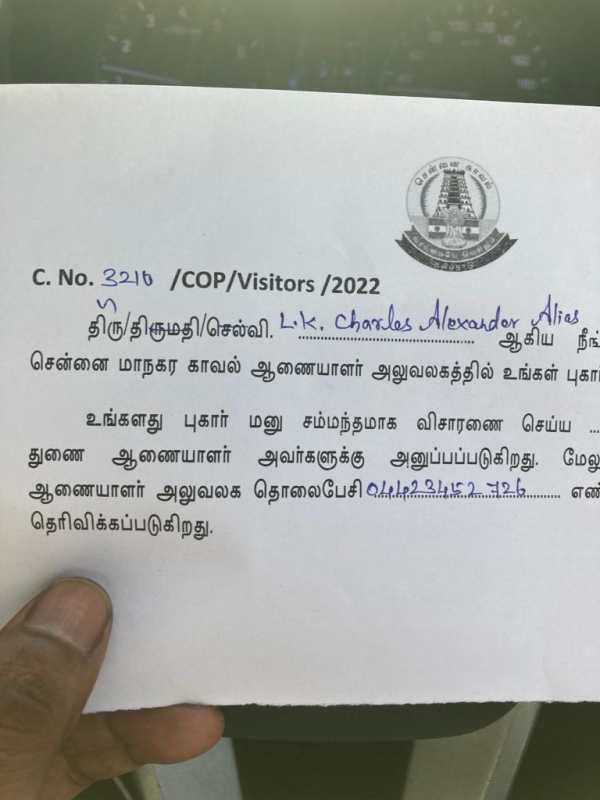 சென்னை காவல்
C. No. 3210 /COP/Visitors /2022
திரு/திருமதி/செல்வி. L.K. Charles Alexander Alias ஆகிய நீங்
சென்னை மாநகர காவல் ஆணையாளர் அலுவலகத்தில் உங்கள் புகார்
உங்களது புகார் மனு சம்மந்தமாக விசாரணை செய்ய ...
துணை ஆணையாளர் அவர்களுக்கு அனுப்பப்படுகிறது. மேலு
ஆணையாளர் அலுவலக தொலைபேசி 04423452726 எண்
தெரிவிக்கப்படுகிறது.